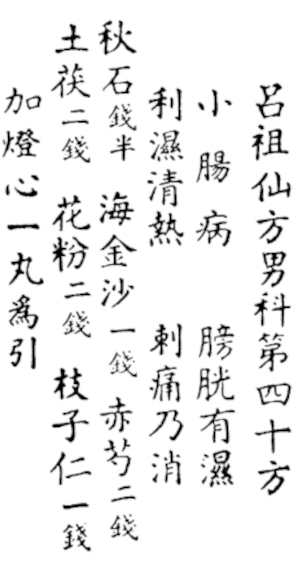 呂祖仙方男科第四十方
小腸病　膀胱有濕
利濕清熱　刺痛乃消
秋石錢半　海金沙一錢　赤芍二錢
土茯二錢　花粉二錢　枝子仁一錢
加燈心一丸爲引